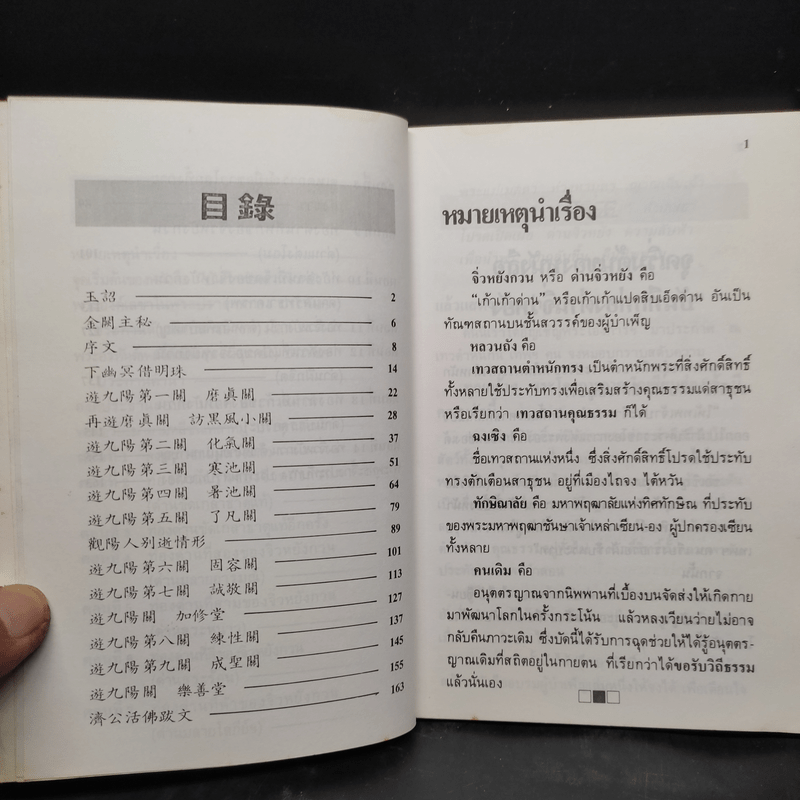 目錄
玉詔 2
金闕主秘 6
序文 8
下幽冥借明珠 14
遊九陽第一關 磨眞關 22
再遊磨眞關 訪黑風小關 28
遊九陽第二關 化氣關 37
遊九陽第三關 寒池關 51
遊九陽第四關 暑池關 64
遊九陽第五關 了凡關 79
觀陽人別逝情形 89
遊九陽第六關 固容關 101
遊九陽第七關 誠敬關 113
遊九陽關 加修堂 127
遊九陽第八關 練性關 137
遊九陽第九關 成聖關 145
遊九陽關 樂善堂 155
濟公活佛跋文 163
1
หมายเหตุนำเรื่อง
จิ่วหยังกวน หรือ ด่านจิ่วหยัง คือ
“เก้าเก้าด่าน” หรือเก้าเก้าแปดสิบเอ็ดด่าน อันเป็น
ทัณฑสถานบนชั้นสวรรค์ของผู้บำเพ็ญ
หลวนถัง คือ
เทวสถานตำหนักทรง เป็นตำหนักพระที่สิ่งศักดิ์สิทธิ์
ทั้งหลายใช้ประทับทรงเพื่อเสริมสร้างคุณธรรมแด่สาธุชน
หรือเรียกว่า เทวสถานคุณธรรม ก็ได้
ฉงเซิง คือ
ชื่อเทวสถานแห่งหนึ่ง ซึ่งสิ่งศักดิ์สิทธิ์โปรดใช้ประทับ
ทรงตักเตือนสาธุชน อยู่ที่เมืองไถจง ไต้หวัน
ทักษิณาลัย คือ มหาพฤฒาลัยแห่งทิศทักษิณ ที่ประทับ
ของพระมหาพฤฒาชันษาเจ้าเหล่าเซียน-อง ผู้ปกครองเซียน
ทั้งหลาย
คนเดิม คือ
อนุตตรญาณจากนิพพานที่เบื้องบนจัดส่งให้เกิดกาย
มาพัฒนาโลกในครั้งกระโน้น แล้วหลงเวียนว่ายไม่อาจ
กลับคืนภาวะเดิม ซึ่งบัดนี้ได้รับการฉุดช่วยให้ได้รู้อนุตตร-
ญาณเดิมที่สถิตอยู่ในกายตน ที่เรียกว่าได้ขอรับวิถีธรรม
แล้วนั่นเอง